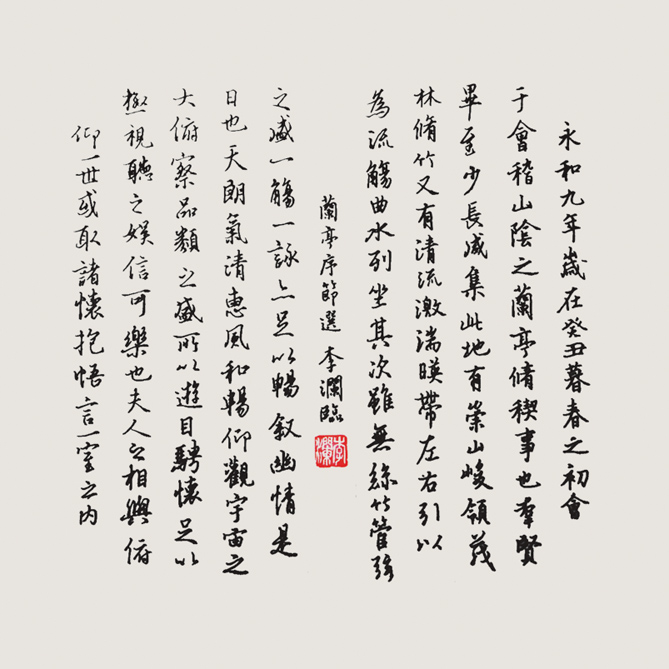 永和九年歲在癸丑暮春之初會
于會稽山陰之蘭亭脩稧事也羣賢
畢至少長咸集此地有崇山峻領茂
林脩竹又有清流激湍暎帶左右引以
為流觴曲水列坐其次雖無絲竹管弦
蘭亭序節選 李瀾臨
李瀾
之盛一觴一詠亦足以暢敘幽情是
日也天朗氣清惠風和暢仰觀宇宙之
大俯察品類之盛所以遊目騁懷足以
極視聽之娛信可樂也夫人之相與俯
仰一世或取諸懷抱悟言一室之內